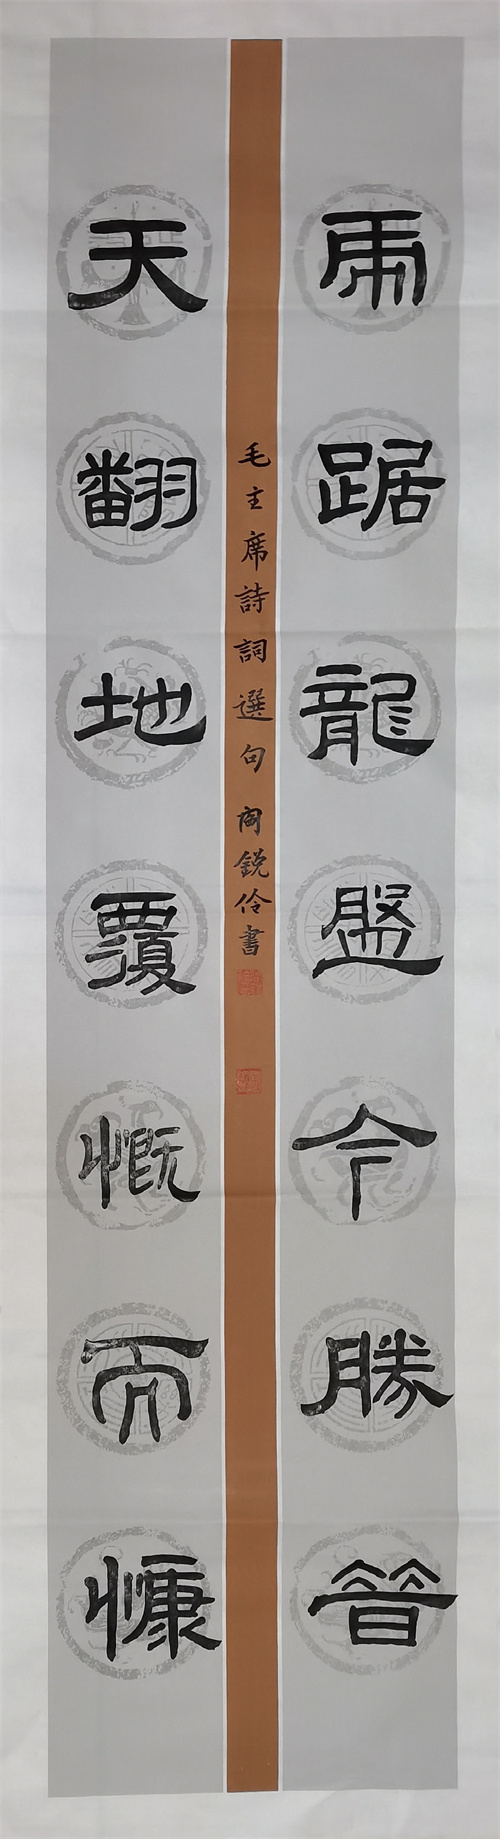 虎踞龍盤今勝昔
毛主席詩詞選句 銳伶書
天翻地覆慨而慷